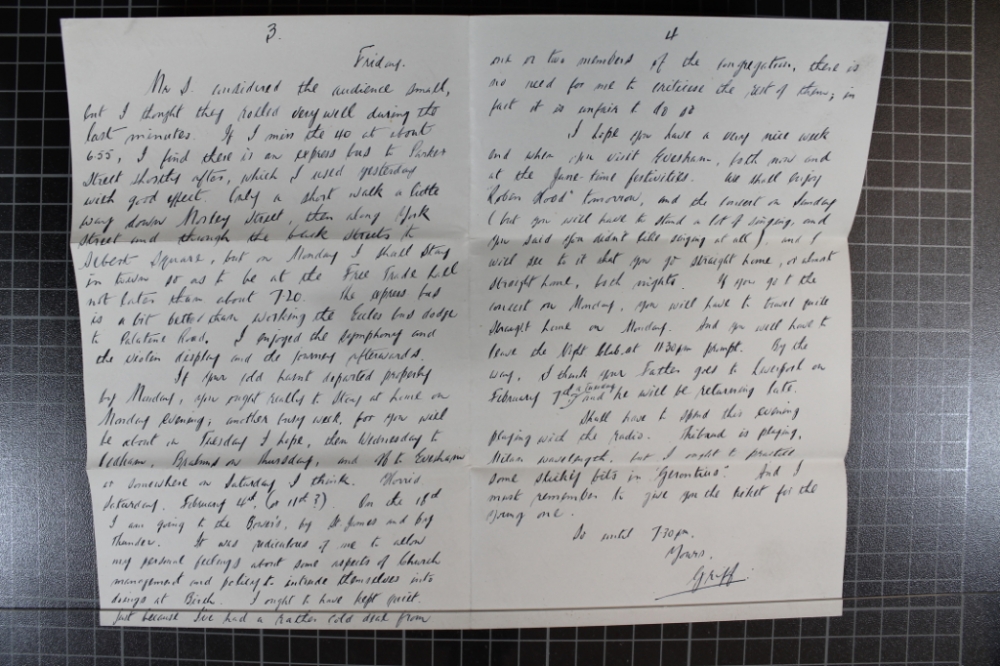 3.
Friday.
Mr S. considered the audience small,
but I thought they rolled very well during the
last minutes. If I miss the 40 at about
6.55, I find there is an express bus to Parker
Street shortly after, which I used yesterday
with good effect. Only a short walk a little
way down Mosley Street, then along York
Street and through the back streets to
Albert Square, but on Monday I shall stay
in town so as to be at the Free Trade Hall
not later than about 7.20. The express bus
is a bit better than working the Eccles bus dodge
to Palatine Road. I enjoyed the symphony and
the display and the journey afterwards.
If your cold hasn't departed properly
by Monday, you ought really to stay at home on
Monday evening; another busy week, for you will
be about on Tuesday I hope, then Wednesday to
Brahms on Thursday, and off to Evesham
or somewhere on Saturday I think.
Saturday. February 4th. (or 11th?). On the 18th
I am going to the by St James and by
thunder. It was ridiculous of me to allow
my personal feelings about some aspects of Church
management and policy to intrude themselves into
doings at Birch. I ought to have kept quiet.
Just because I've had a rather cold deal from
4
one or two members of the congregation, there is
no need for me to criticise the rest of them; in
fact it is unfair to do so
I hope you have a very nice week
end when you visit Evesham, both now and
at the June-time festivities. We shall enjoy
'Robin Hood' tomorrow, and the concert on Sunday
(but you will have to stand a lot of singing, and
you said you didn't like singing at all), and I
will see to it that you go straight home, or almost
straight home, both nights. If you get the
concert on Monday, you will have to travel quite
straight home on Monday. And you will have to
leave the Night Club at 11.30pm prompt. By the
way, I think your Father goes to Liverpool on
February 7th and he will be returning late.
Shall have to spend this evening
playing with the radio. Thibaud is playing,
Milan wavelength, but I ought to practise
some bits in 'Gerontius'. And I
must remember to give you the ticket for the
young one.
So until 7.30pm.
Yours,
Griff.